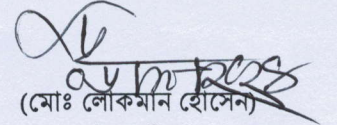 (মোঃ লোকমান হোসেন)